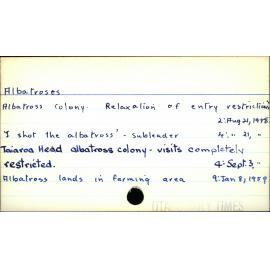 Albatroses
Albatross Colony. Relaxation of entry restriction
2: Aug 21, 1958
'I shot the albatross' - subleader 4: " 21, "
Taiaroa Head albatross colony - visits completely
restricted. 4: Sept. 3, "
Albatross lands in farming area 9: Jan 8, 1959
TIMES